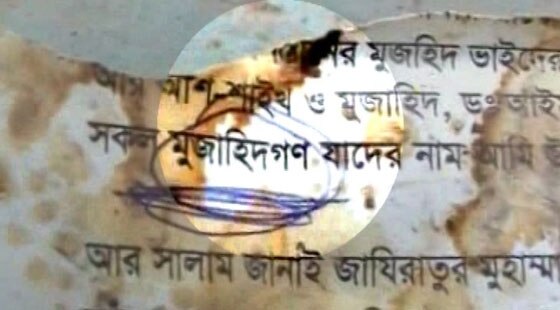 মুজহিদ ভাইদের
আস আশ-শাইখ ও মুজাহিদ,
সকল মুজাহিদগণ যাদের নাম আমি
আর সালাম জানাই জাযিরাতুর মুহাম্মা